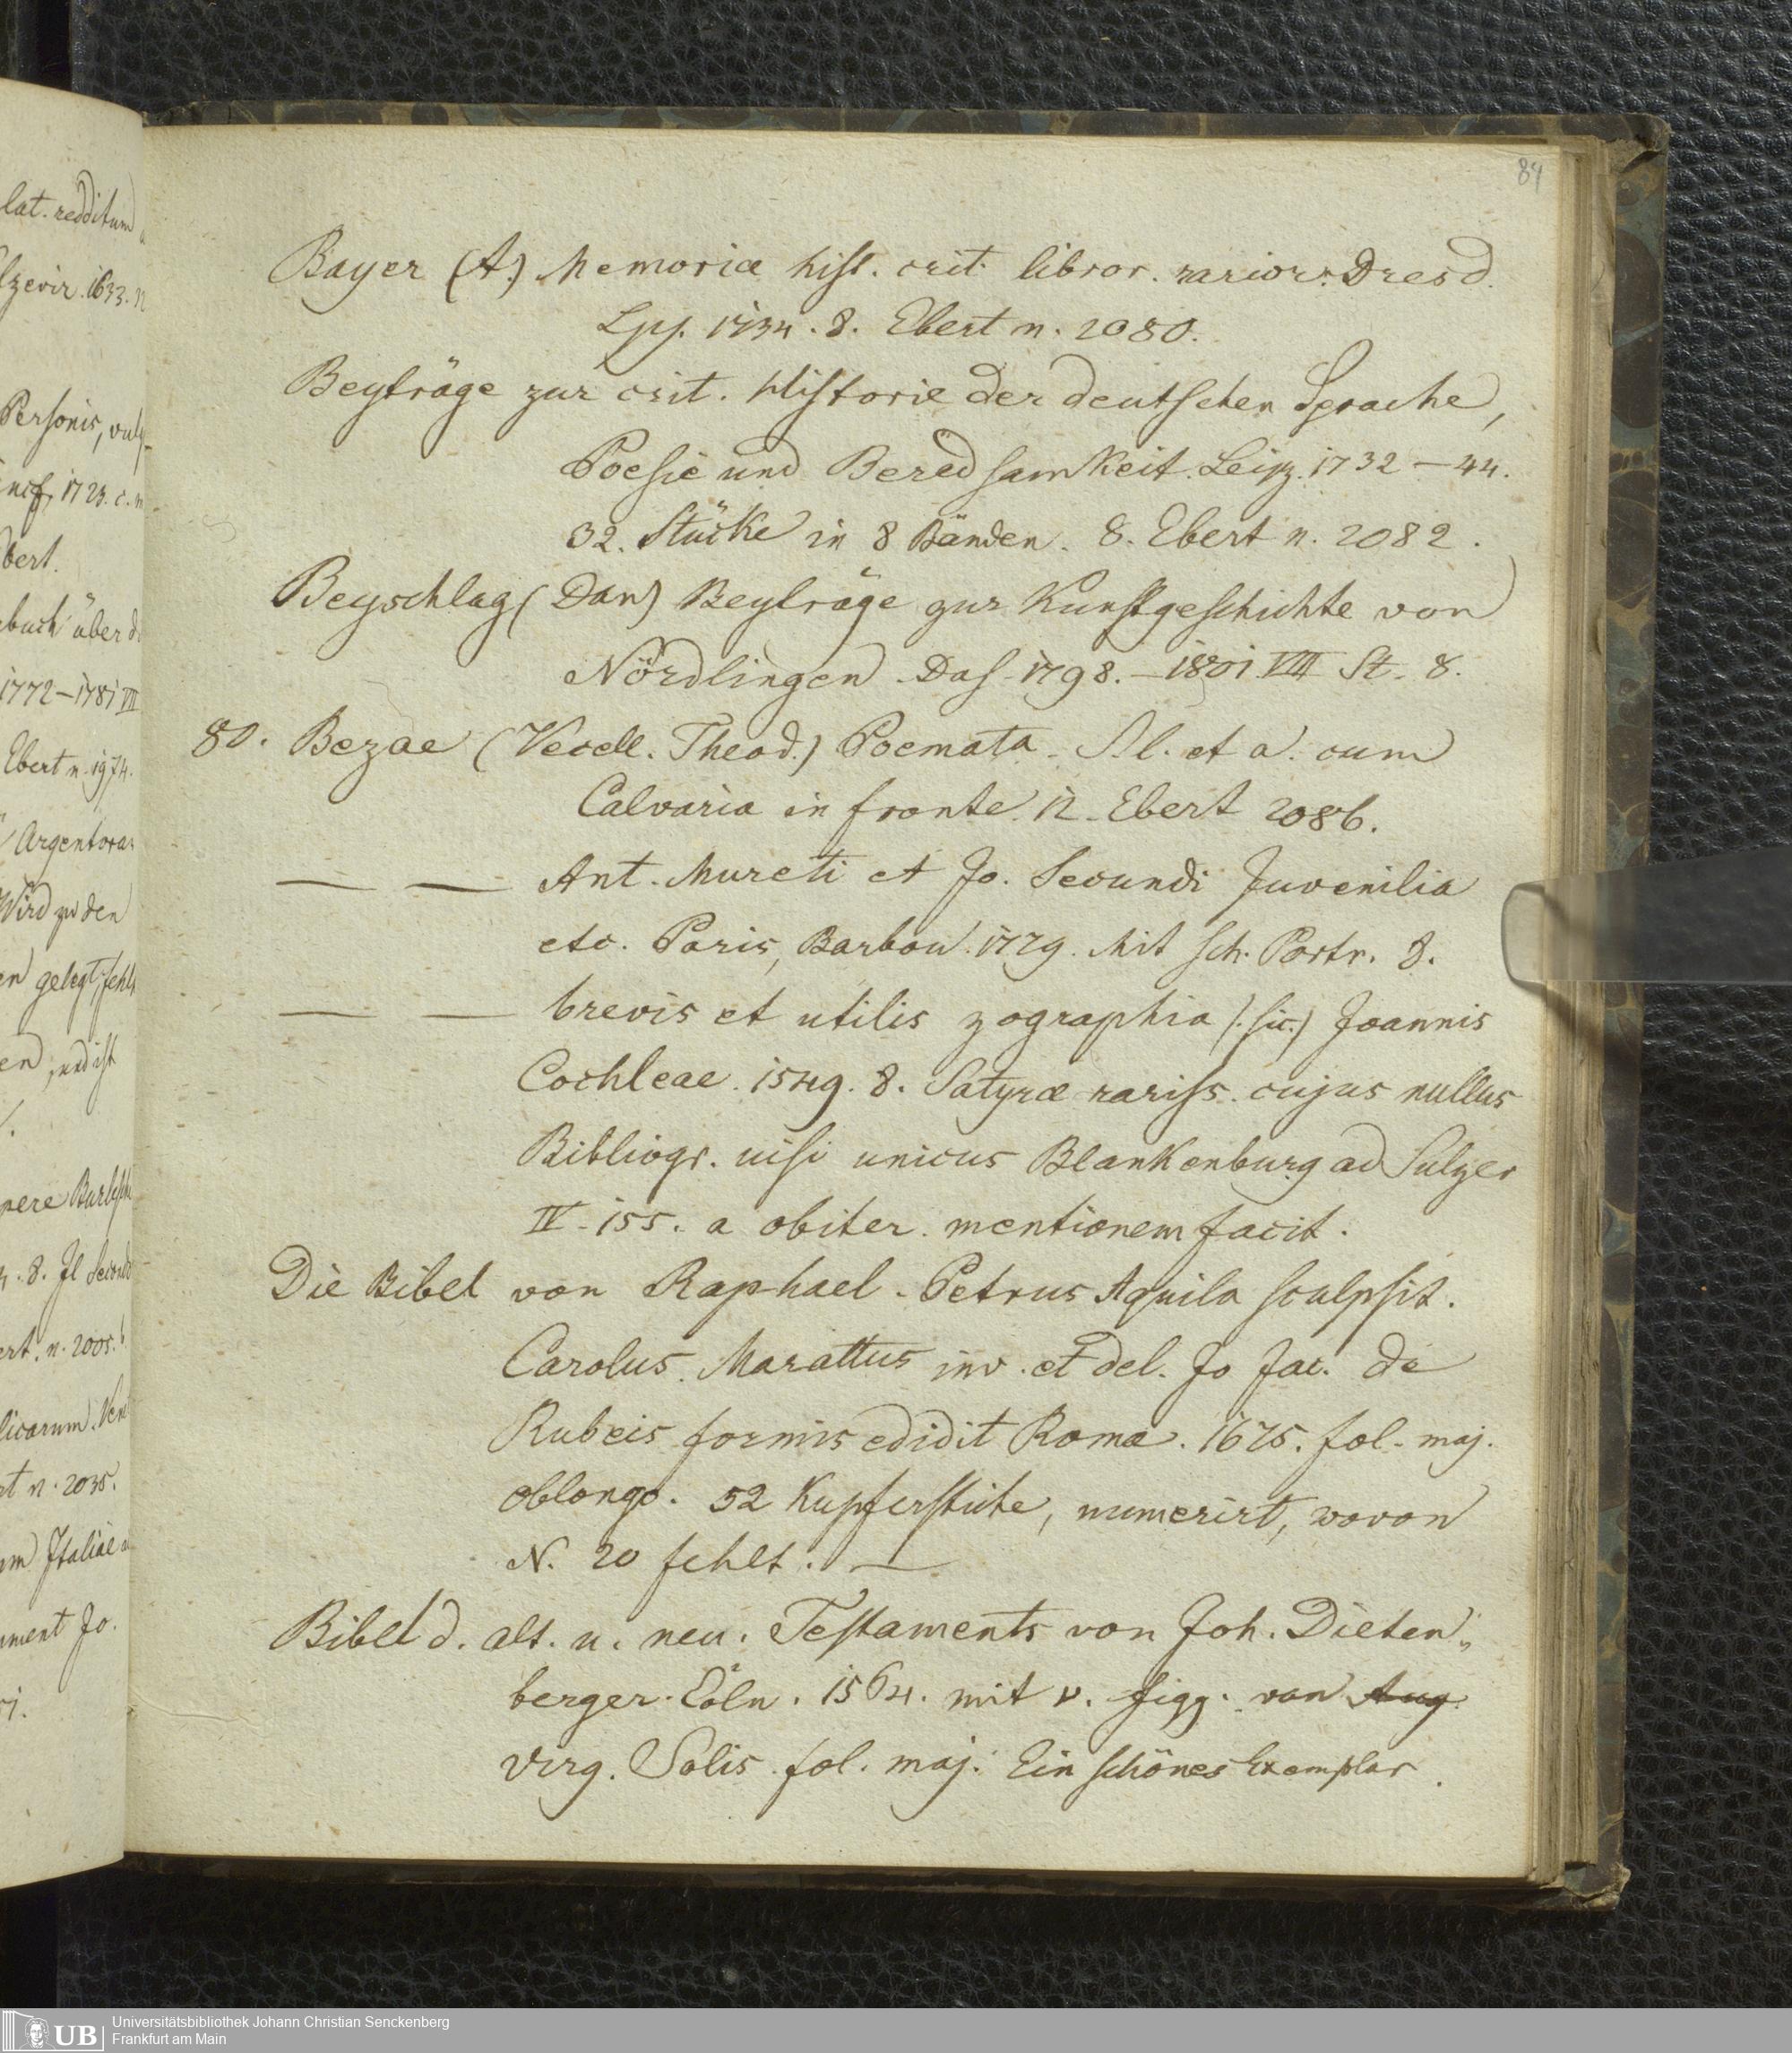 84
Bayer (A.) Memoriæ hist. crit. libror. rarior. Dresd.
Lpz. 1734. 8. Ebert n. 2080.
Beyträge zur crit. Historie der deutschen Sprache,
Poesie und Beredsamkeit. Leipz. 1732 – 44.
32. Stücke in 8 Bänden. 8. Ebert n. 2082.
Beyschlag (Dan) Beyträge zur Kunstgeschichte von
Nördlingen. Das. 1798. – 1801. VIII St. 8.
80. Bezae (Vecell. Theod.) Poemata. S. l. et a. cum
Calvaria in fronte. 12. Ebert 2086.
— — Ant. Mureti et Jo. Secundi Juvenilia
etc. Paris, Barbou. 1779. Mit sch. Portr. 8.
— — brevis et utilis zographia (: sic.) Joannis
Cochleae. 1549. 8. Satyræ rariss. cujus nullus
Bibliogr. nisi unicus Blankenburg ad Sulzer
IV. 155. a obiter mentionem facit.
Die Bibel von Raphael. Petrus Aquila sculpsit.
Carolus Marattus inv. et del. Jo Jac. de
Rubeis formis edidit Romæ. 1675. fol. maj.
oblongo. 52 Kupferstiche, numerirt, wovon
N. 20 fehlt. —
Bibel d. alt. u. neu. Testaments von Joh. Dieten„
berger. Cöln. 1564. mit v. figg. von Aug.
Virg. Solis. fol. maj. Ein schönes Exemplar.
lat. redditum
lzevir. 1633. 12
Personis, vulg
1723. c.
bert.
buch über d
1772–1781 VII
Ebert n. 1974.
Argentora
Wird zu den
en gelegt, fehlt
en, und ist
pere
8. Il Second
ert. n. 2005. b
licarum. Ven
rt n. 2035.
m Italiæ
ment Jo.
UB
Universitätsbibliothek Johann Christian Senckenberg
Frankfurt am Main